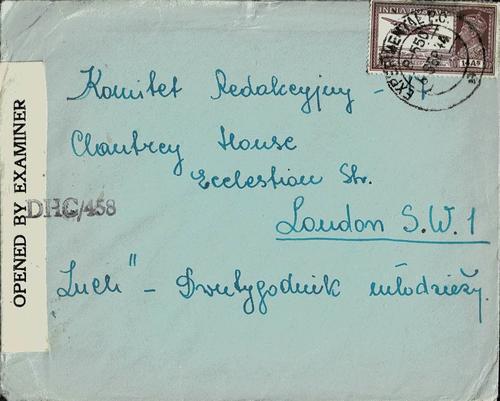 INDIA POSTAGE
EXPERIMENTAL P.O.
Komitet Redakcyjny -
Chantrey House
Ecclestian Str.
London S.W.1
"Zuch" - Dwutygodnik młodzieży.
OPENED BY EXAMINER
DHC/458